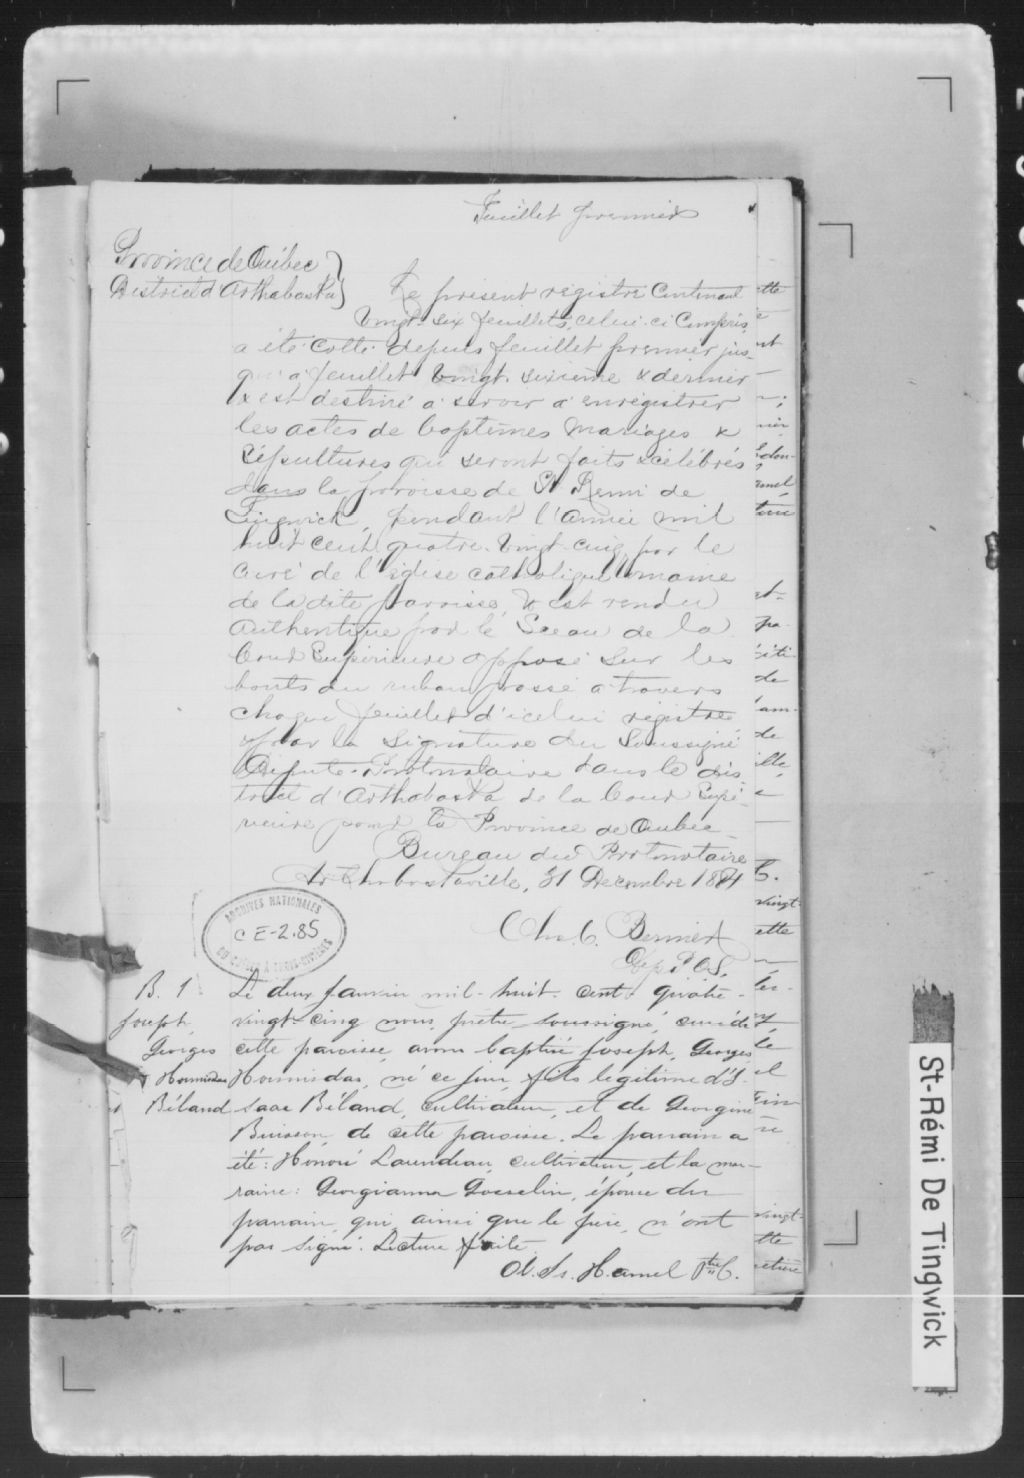 Feuillet premier
Province de Québec
District d'Arthabaska
Le présent registre Contenant
Vingt-six feuillets, celui-ci Compris,
a été Cotté depuis feuillet premier jus-
qu'à feuillet Vingt sixième & dernier
& est destiné à servir à enrégistrer
les actes de Baptêmes Mariages &
Sépultures qui seront faits & célébrés
dans la paroisse de St Rémi de
Tingwick, pendant l'année mil
huit cent quatre-Vingt-cinq, par le
Curé de l'Eglise catholique romaine
de la dite paroisse, & est rendu
Authentique par le Sceau de la
Cour Supérieure apposé Sur les
bouts du ruban passé à travers
chaque feuillet d'icelui registre
& par la Signature du Soussigné
Député-Protonotaire dans le dis-
trict d'Arthabaska de la Cour Supé-
rieure pour la Province de Québec
Bureau du Protonotaire
Arthabaskaville, 31 Décembre 1884
Chs. C. Bernier
Dép. P. C. S.
ARCHIVES NATIONALES
CE-2.85
DU QUÉBEC À TROIS-RIVIÈRES
B. 1
Joseph,
Georges
& Hormisdas
Béland
Le deux Janvier mil-huit-cent-quatre-
vingt-cinq nous, prêtre soussigné, curé de
cette paroisse, avons baptisé Joseph, Georges,
Hormisdas, né ce jour, fils légitime d'I-
saac Béland, cultivateur, et de Georgine
Buisson, de cette paroisse. Le parrain a
été: Honoré Laundeau, cultivateur, et la mar-
raine: Georgianna Gosselin, épouse du
parrain, qui, ainsi que le père, n'ont
pas signé. Lecture faite.
Ol. Is. Hamel Ptre C.
St-Rémi De Tingwick